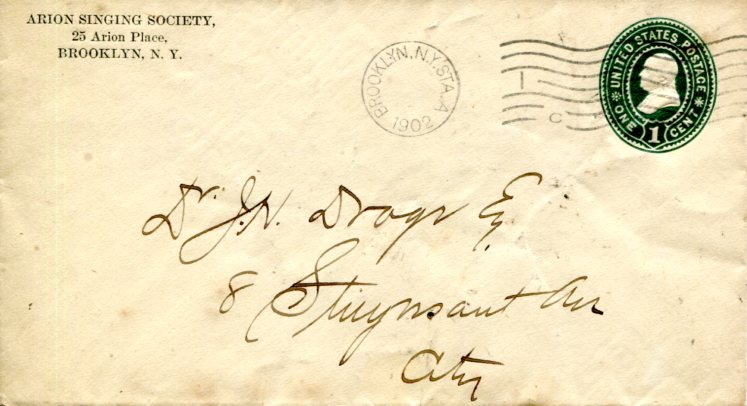 ARION SINGING SOCIETY,
25 Arion Place,
BROOKLYN, N. Y.
BROOKLYN, N.Y. STA. A
1902
UNITED STATES POSTAGE
ONE 1 CENT
Dr. J. N. Drogr Eq
8 Stuyvsant Av
City